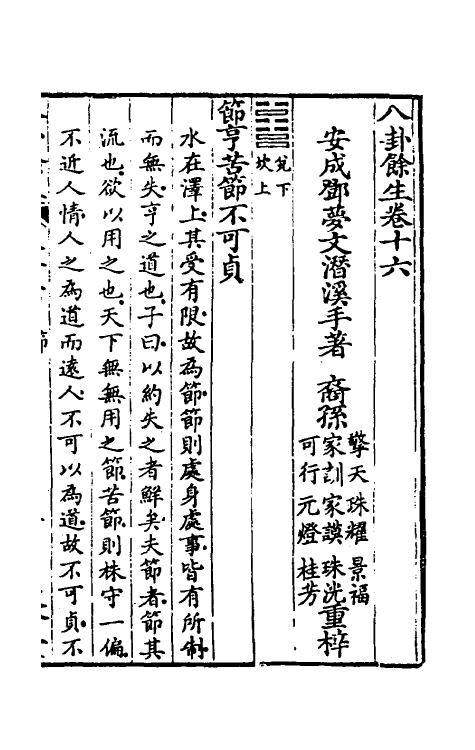 八卦餘生卷十六
安成鄧夢文潛溪手著 裔孫
擎天 珠耀 景福
家訓 家謨 珠洸 重梓
可行 元燈 桂芳
兌下
坎上
節亨苦節不可貞
水在澤上其受有限故為節節則處身處事皆有所制
而無失亨之道也子曰以約失之者鮮矣夫節者節其
流也欲以用之也天下無無用之節苦節則株守一偏
不近人情人之為道而遠人不可以為道故不可貞不